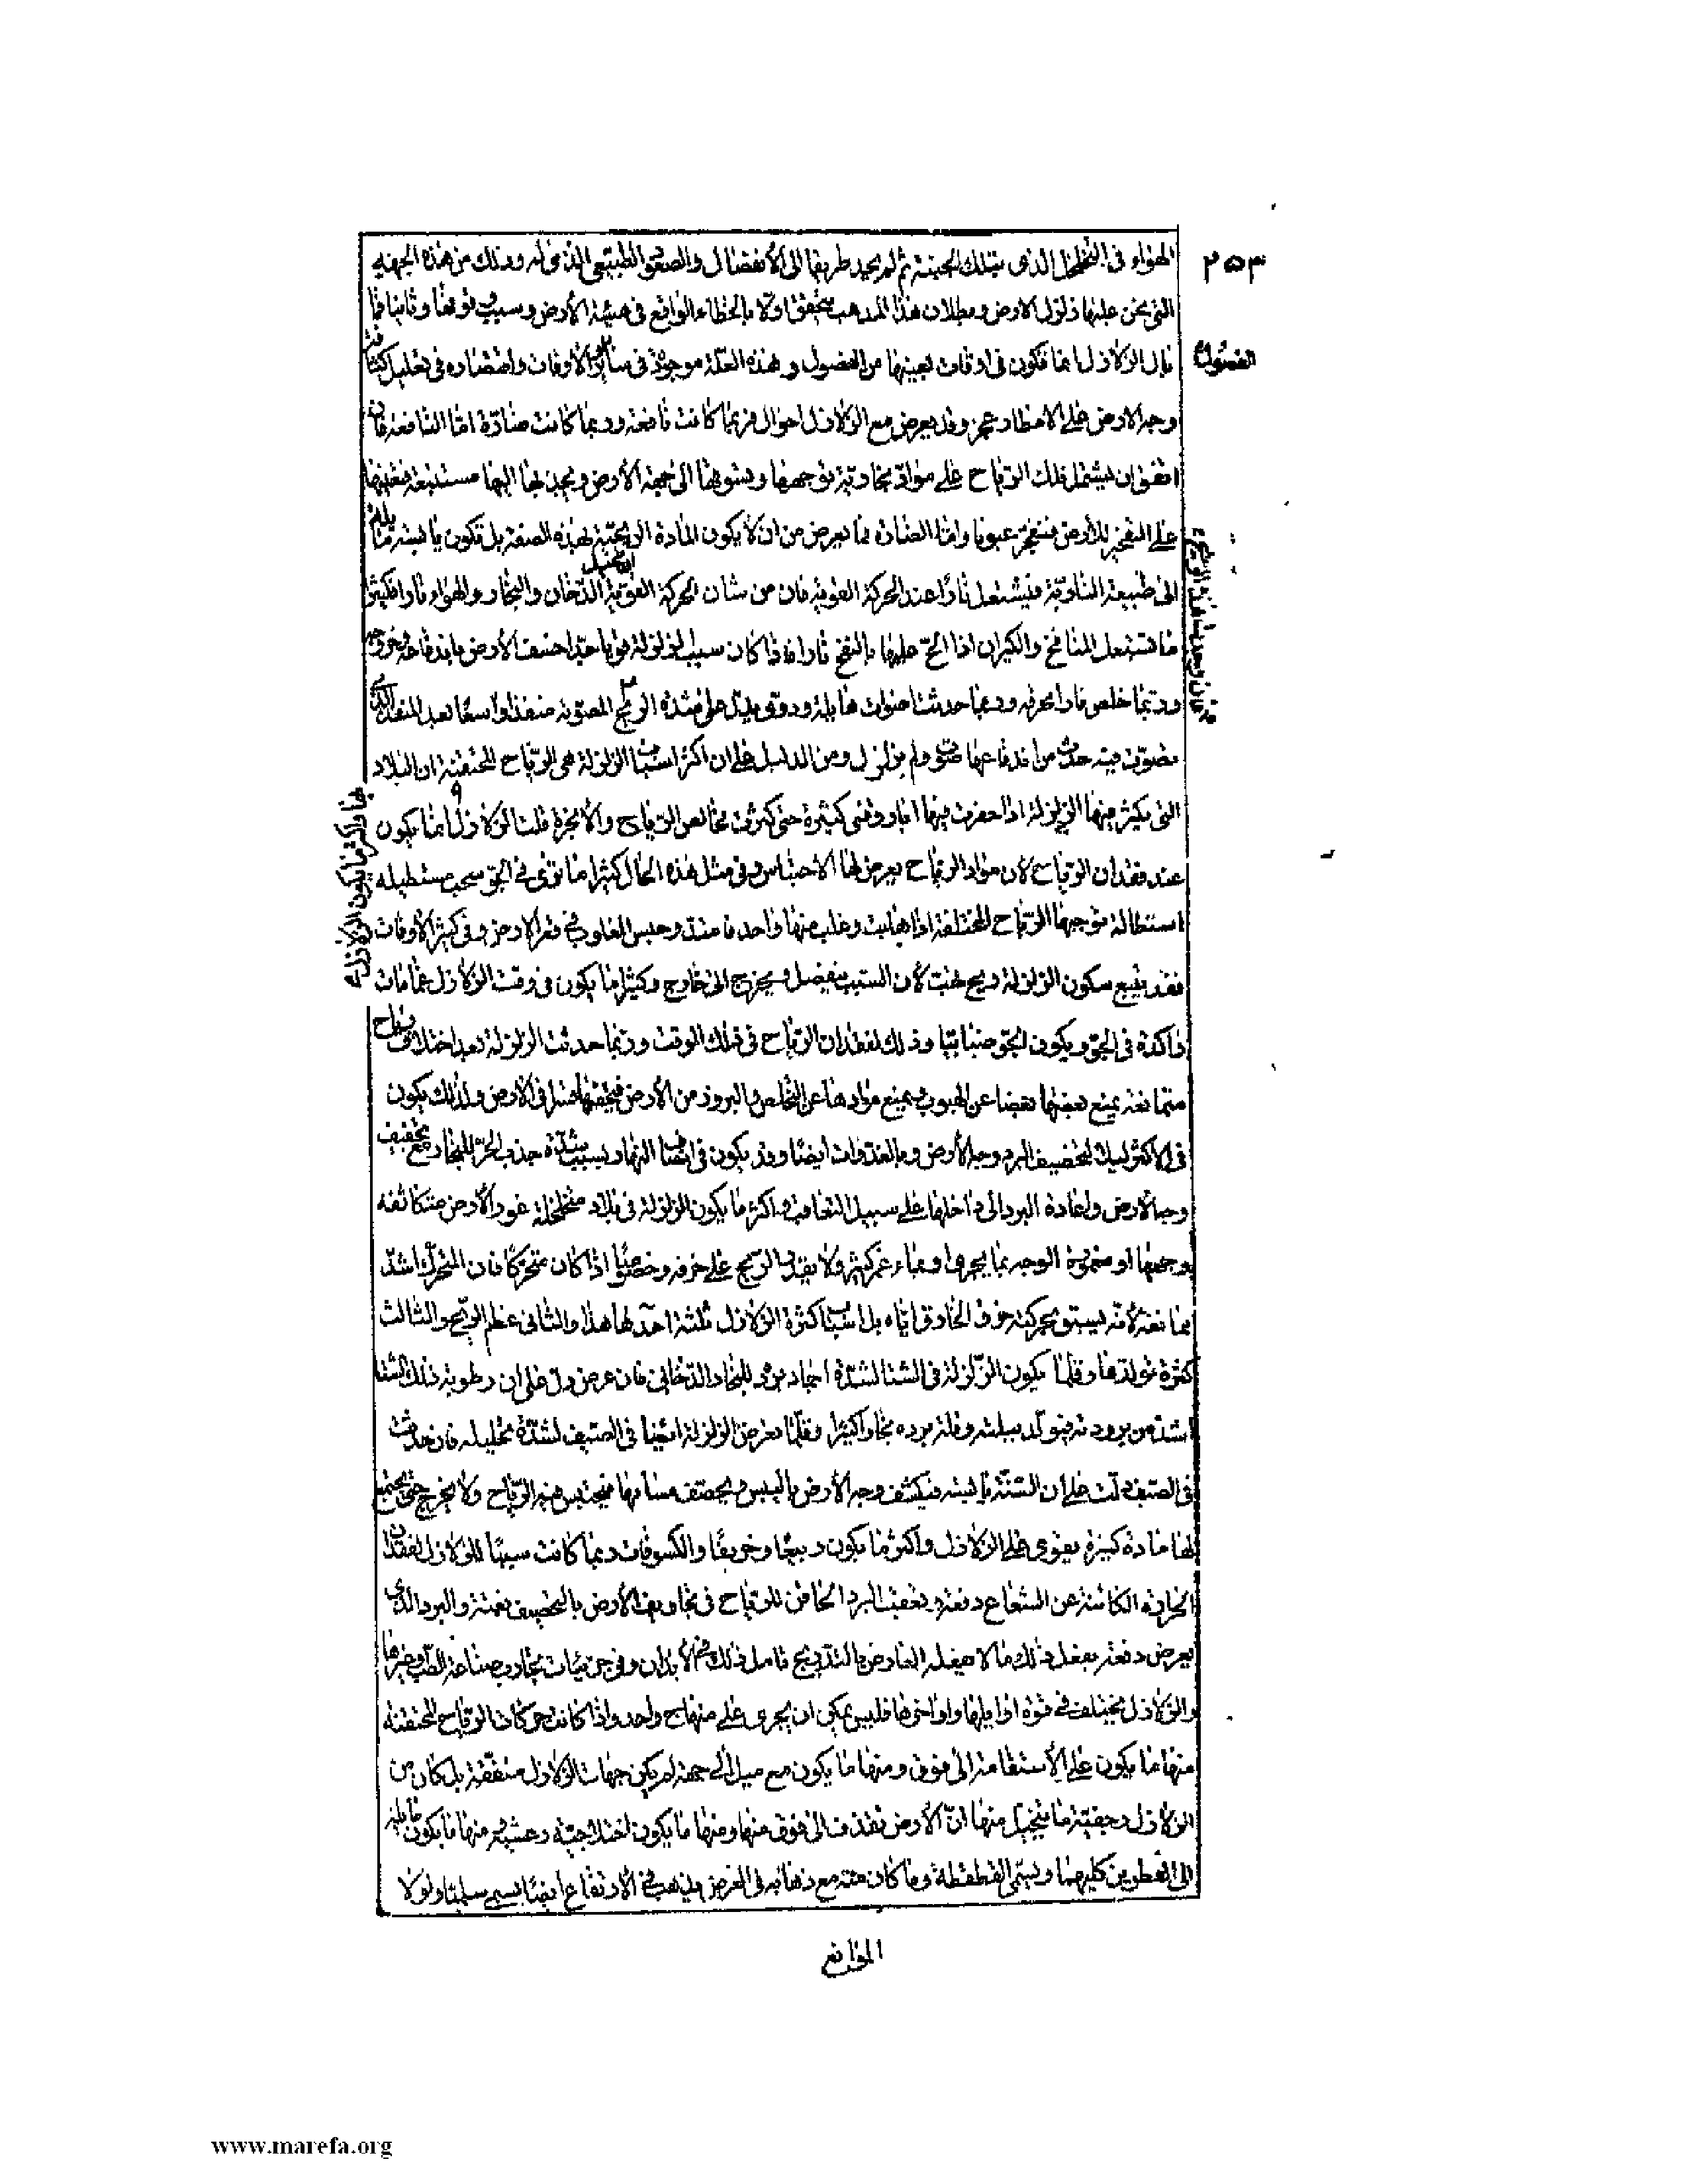 ٢٥٣
الهواء فى التخلخل الذى بتلك الجنبة ثم لم يجد طريقا الى الأنفصال والصعود الطبيعى الذى له وذلك من هذه الجهة
التى نحن عليها زلزل الارض وبطلان هذا المذهب يتحقق اولا بالخطاء الواقع فى هيئة الأرض وسبب وقوفها وثانيا فما
بال الزلازل انما تكون فى اوقات بعينها من الفصول وهذه العلة موجودة فى سائر الأوقات واقتصاره فى تعليل
الفصول
وجه الارض على الامطار عجز وقد يعرض مع الزلازل احوال فربما كانت نافعة وربما كانت ضارة اما النافعة فان
اتفق ان يشتمل تلك الرياح على مواد بخارية توجهها وتسوقها الى جهة الأرض ويجذبها اليها مستتبعة فيعينها
على التفجير للارض فتنفجر عيونا واما الضارة فما يعرض من ان لا يكون المادة الريحية بهذه الصفة بل تكون يابسة مائلة
الى طبيعة النارية فيشتعل نارا عند الحركة القوية فان من شان الحركة القوية الدخان والبخار والهواء نارا فكثيرا
ما تشتعل المنافخ والكيران اذا الح عليها بالنفخ نارا فاذا كان سبب الزلزلة قويا جدا خسف الأرض باندفاعه وخروجه
وربما خلص نارا محرقة وربما حدثت اصوات هايلة ودوى يدل على شدة الريح المصوتة منفذا واسعا بعد المنفذ الذى
تصوت فيه حدث من اندفاعها صوت ولم يزلزل ومن الدليل على ان اكثر اسباب الزلزلة هى الرياح المحتقنة ان البلاد
التى يكثر فيها الزلزلة اذا حفرت فيها آبار وقنى كثيرة حتى كثرت مخالص الرياح والأبخرة قلت الزلازل انما يكون
بها واكثر ما يكون الزلازل
عند فقدان الرياح لان مواد الرياح يعرض لها الاحتباس وفى مثل هذه الحال كثيرا ما ترى فى الجو سحب مستطيلة
استطالة توجبها الرياح المختلفة اذا هبت وغلب منها واحد فامتد وحبس المغلوب فى قعر الارض وفى كثير الأوقات
فقد يتبع سكون الزلزلة ريح تهب لأن السبب ينفصل ويخرج الى خارج وكثيرا ما يكون فى وقت الزلازل غمامات
راكدة فى الجو ويكون الجو ضبابيا وذلك لفقدان الرياح فى ذلك الوقت وربما حدثت الزلزلة بعد اختلاف رياح
متمانعة يمنع بعضها بعضا عن الهبوب ويمنع موادها عن التخلص والبروز من الأرض فيحقنها قسرا فى الأرض ولذلك يكون
فى الاكثر ليلا لتحصيف البرد وجه الأرض وبالغدوات ايضا وقد يكون فى انصاف النهار بسبب شدة جذب الحر للبخار مع تجفيف
وجه الأرض واعادة البرد الى داخلها على سبيل التعاقب واكثر ما يكون الزلزلة فى بلاد متخلخلة غور الأرض متكاثفة
وجهها او مغمورة الوجه بما يجرى او بماء غمر كثير ولا يقدر الريح على خرقه وخصوصا اذا كان متحركا فان المتحرك اشد
ممانعة لأنه يسبق بحركته خرق الخارق اياه بل اسباب كثرة الزلازل ثلثة احدها هذا والثانى عظم الريح والثالث
كثرة تولدها وقلما يكون الزلزلة فى الشتا لشدة اجماد البرد للبخار الدخانى فان عرض دل على ان رطوبة ذلك الشتا
اشد من برودته فيتولد ببلته وقلة برده بخارا كثيرا وقلما تعرض الزلزلة ايضا فى الصيف لشدة تحليله فان حدثت
فى الصيف دلت على ان السنة يابسة فيكثف وجه الأرض باليبس ويحصف مسامها فيحتبس فيه الرياح ولا يخرج حتى يجتمع
لها مادة كثيرة يقوى على الزلازل واكثر ما يكون ربيعا وخريفا والكسوفات ربما كانت سببا للزلازل لفقدان
الحرارة الكائنة عن الشعاع دفعة وتعقب البرد الحاقن للرياح فى تجاويف الأرض بالتحصيف بغتة والبرد الذى
يعرض دفعة يفعل ذلك ما لا يفعله العارض بالتدريج تامل ذلك فى الأبدان وفى جزئيات تجارب صناعة الطب وغيرها
والزلازل يختلف فى قوة اوايلها واواخرها فليس يمكن ان يجرى على منهاج واحد واذا كانت حركات الرياح المحتقنة
منها ما يكون على الأستقامة الى فوق ومنها ما يكون مع ميل الى جهة لم يكن جهات الزلازل متفقة بل كان من
الزلازل رجفية ما يتخيل منها ان الأرض تقذف الى فوق منها ومنها ما يكون اختلاجية رعشية ومنها ما يكون مائلة
الى القطرين كليهما ويسمى القطقطة وما كان منه مع ذهابه فى العرض يذهب فى الأرتفاع ايضا يسمى سلميا ولولا
الموانع
www.marefa.org